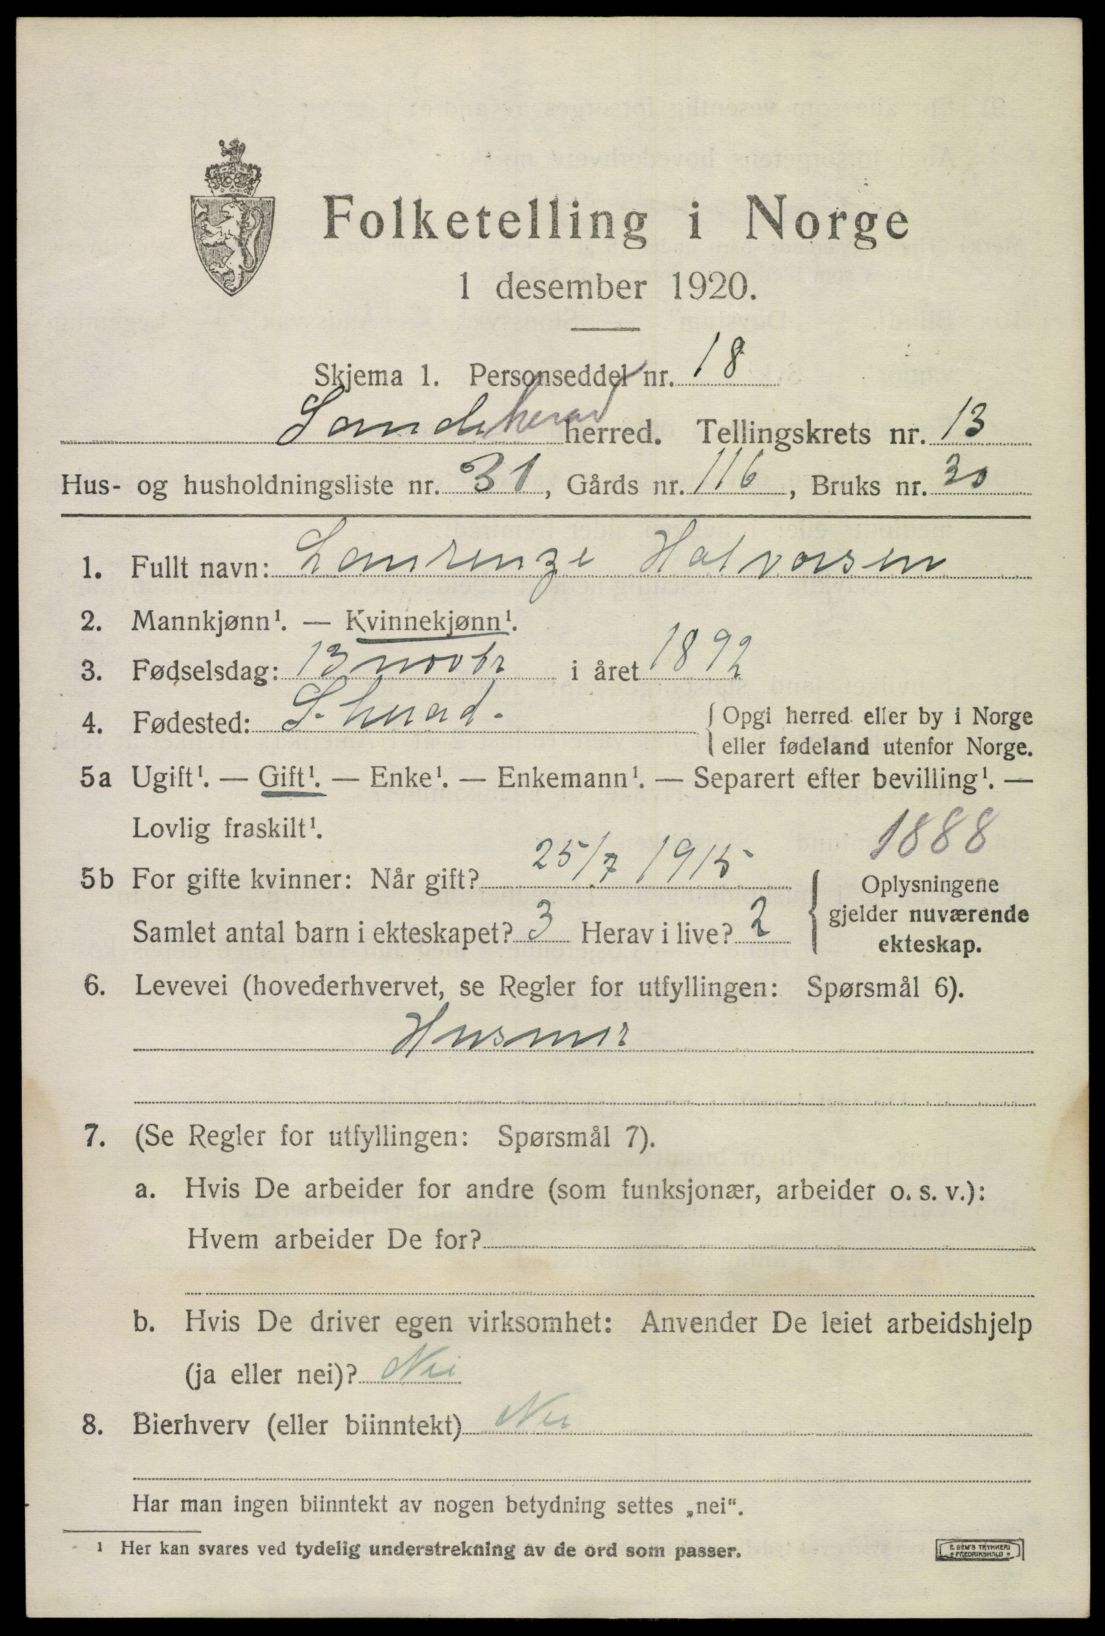 Folketelling i Norge
1 desember 1920.
Skjema 1. Personseddel nr. 18
Sandeherad herred. Tellingskrets nr. 13
Hus- og husholdningsliste nr. 31, Gårds nr. 116, Bruks nr. 30
1. Fullt navn: Laurenze Halvorsen
2. Mannkjønn¹. — Kvinnekjønn¹.
3. Fødselsdag: 13 novbr i året 1892
4. Fødested: S. herad. { Opgi herred eller by i Norge
eller fødeland utenfor Norge.
5a Ugift¹. — Gift¹. — Enke¹. — Enkemann¹. — Separert efter bevilling¹. —
Lovlig fraskilt¹.
1888
5b For gifte kvinner: Når gift? 25/7 1915
Samlet antal barn i ekteskapet? 3 Herav i live? 2
{ Oplysningene
gjelder nuværende
ekteskap.
6. Levevei (hovederhvervet, se Regler for utfyllingen: Spørsmål 6).
Husmor
7. (Se Regler for utfyllingen: Spørsmål 7).
a. Hvis De arbeider for andre (som funksjonær, arbeider o. s. v.):
Hvem arbeider De for?
b. Hvis De driver egen virksomhet: Anvender De leiet arbeidshjelp
(ja eller nei)? Nei
8. Bierhverv (eller biinntekt) Nei
Har man ingen biinntekt av nogen betydning settes „nei“.
¹ Her kan svares ved tydelig understrekning av de ord som passer.
E. SEM'S TRYKKERI
FREDRIKSHALD